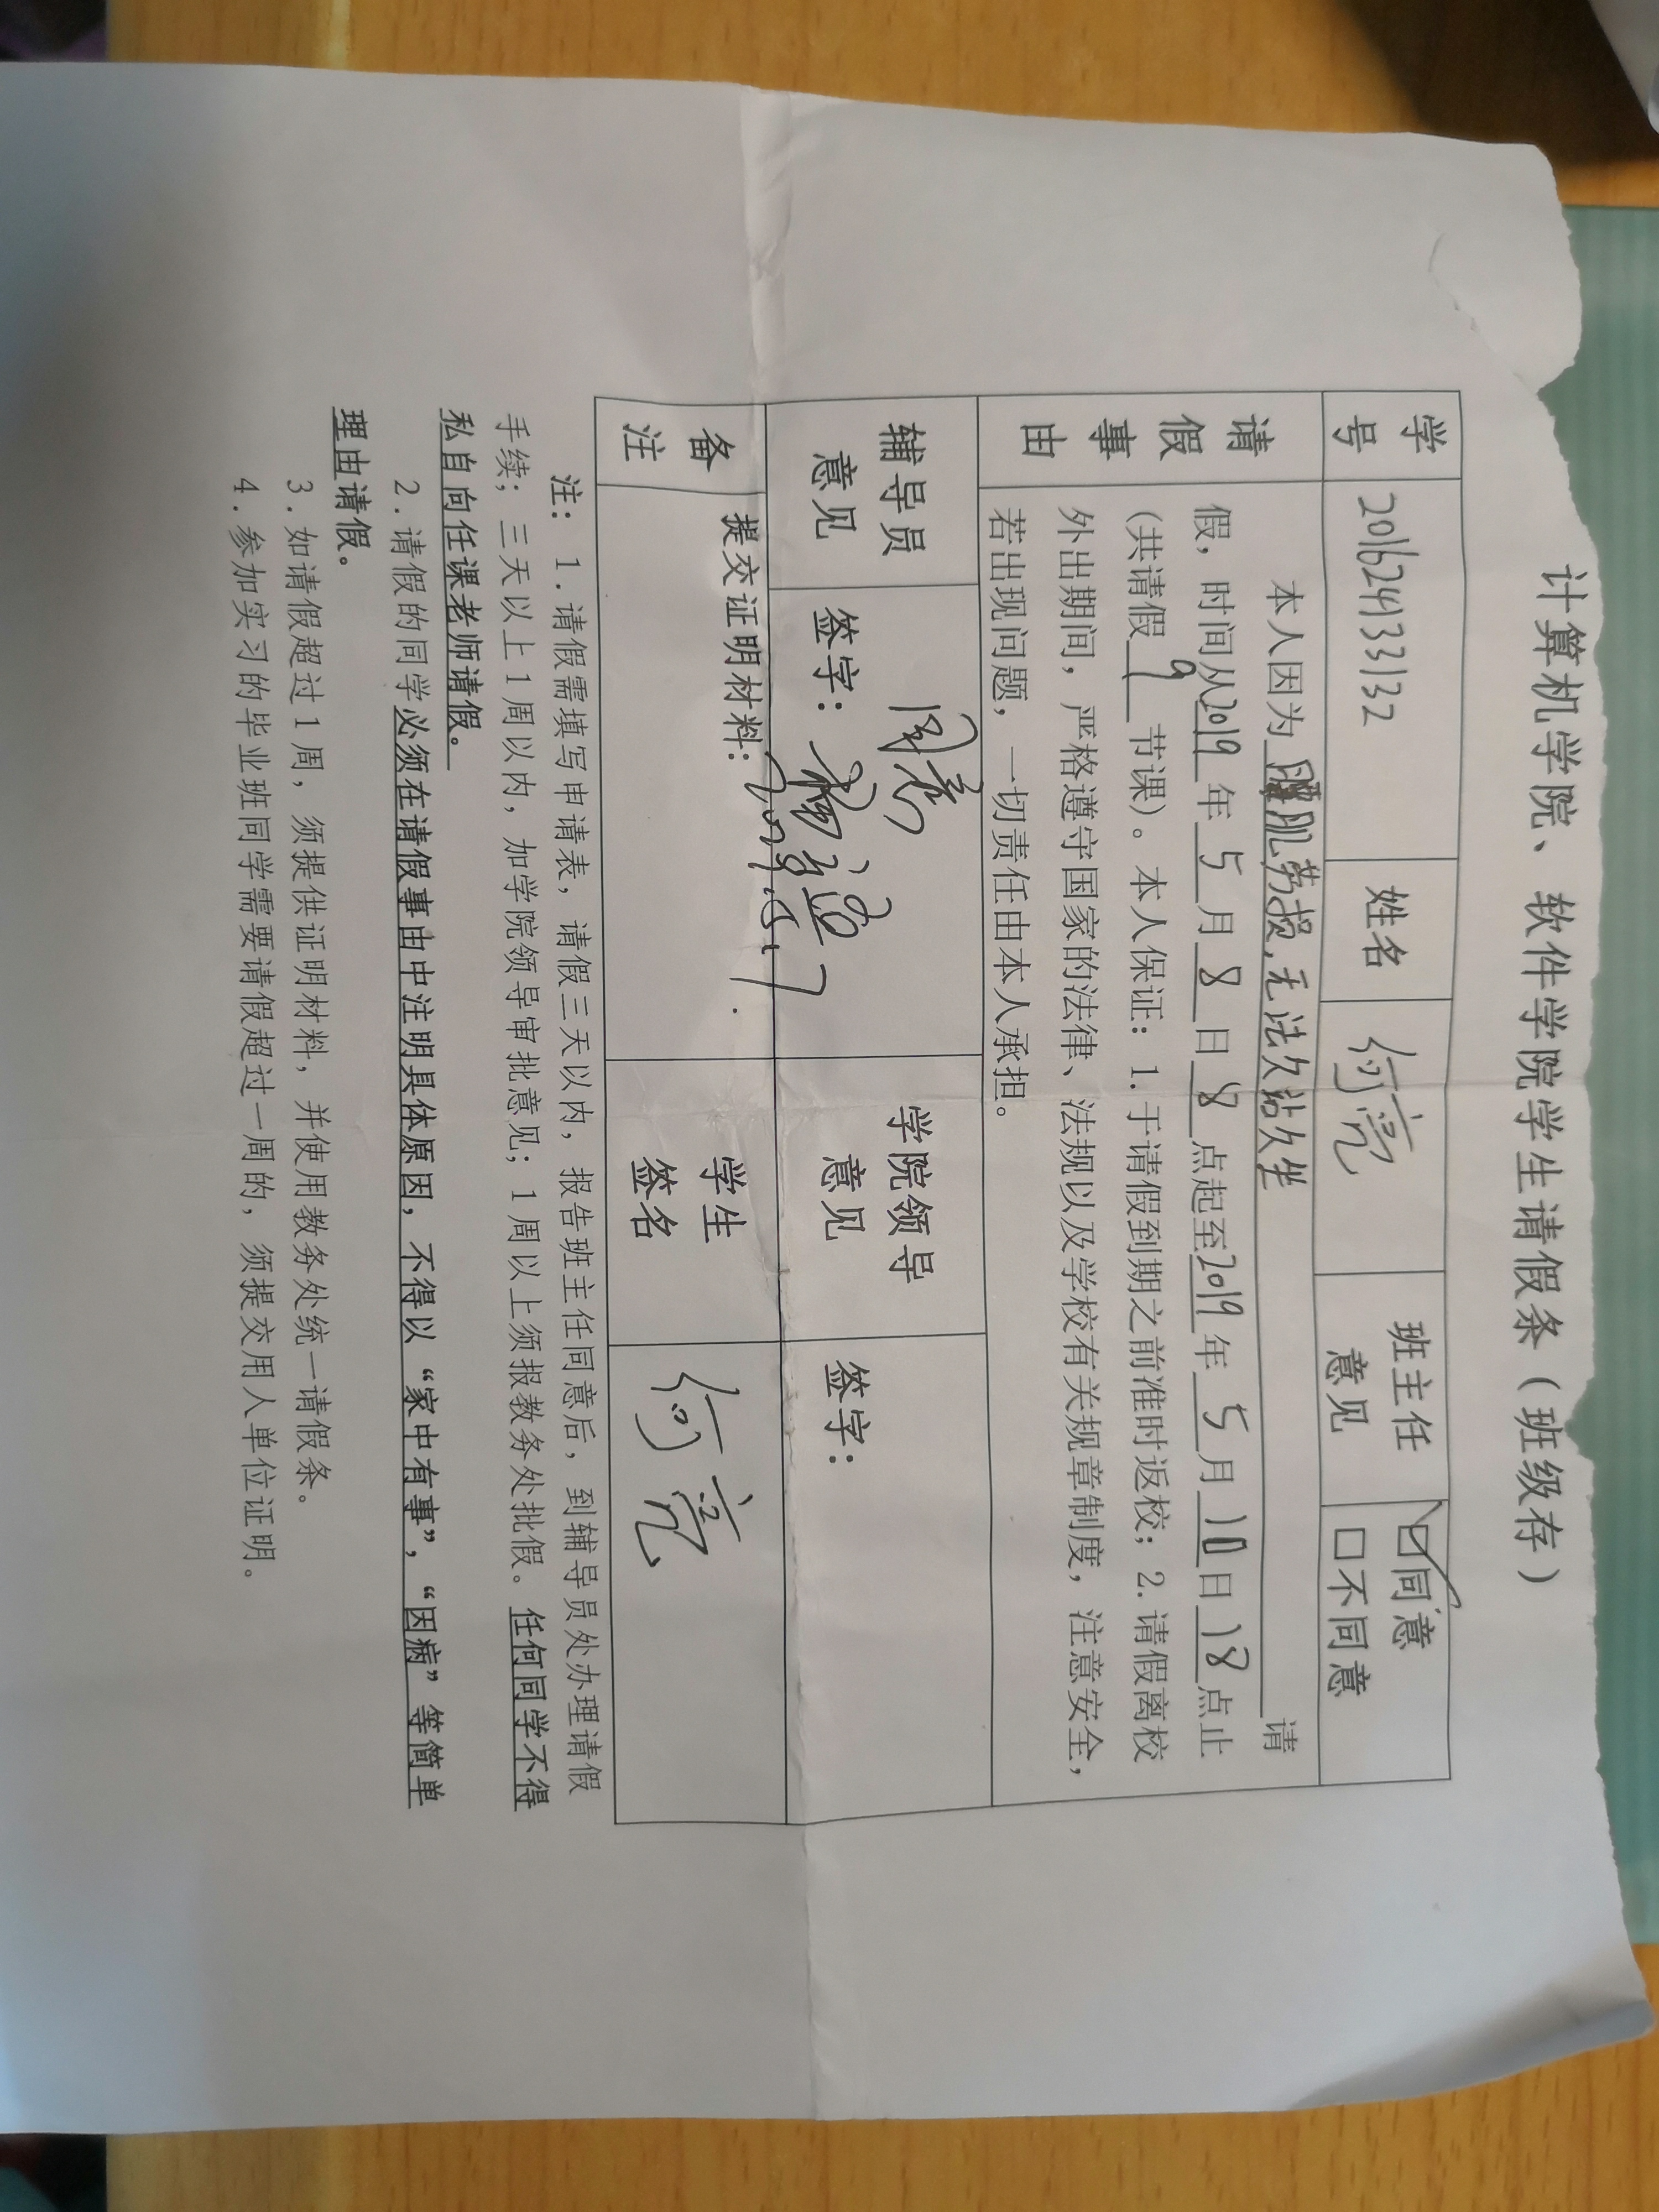 计算机学院、软件学院学生请假条（班级存）
学号 2016241333132 姓名 何亮 班主任意见 ☑同意 □不同意
请假事由
本人因为腰肌劳损,无法久站久坐请
假，时间从2019年5月8日8点起至2019年5月10日18点止
(共请假9节课)。本人保证：1.于请假到期之前准时返校；2.请假离校
外出期间，严格遵守国家的法律、法规以及学校有关规章制度，注意安全，
若出现问题，一切责任由本人承担。
辅导员意见 同意 签字： 2019.5.7 学院领导意见 签字：
备注 提交证明材料： 学生签名 何亮
注：1.请假需填写申请表，请假三天以内，报告班主任同意后，到辅导员处办理请假
手续；三天以上1周以内，加学院领导审批意见；1周以上须报教务处批假。任何同学不得
私自向任课老师请假。
2.请假的同学必须在请假事由中注明具体原因，不得以“家中有事”，“因病”等简单
理由请假。
3.如请假超过1周，须提供证明材料，并使用教务处统一请假条。
4.参加实习的毕业班同学需要请假超过一周的，须提交用人单位证明。